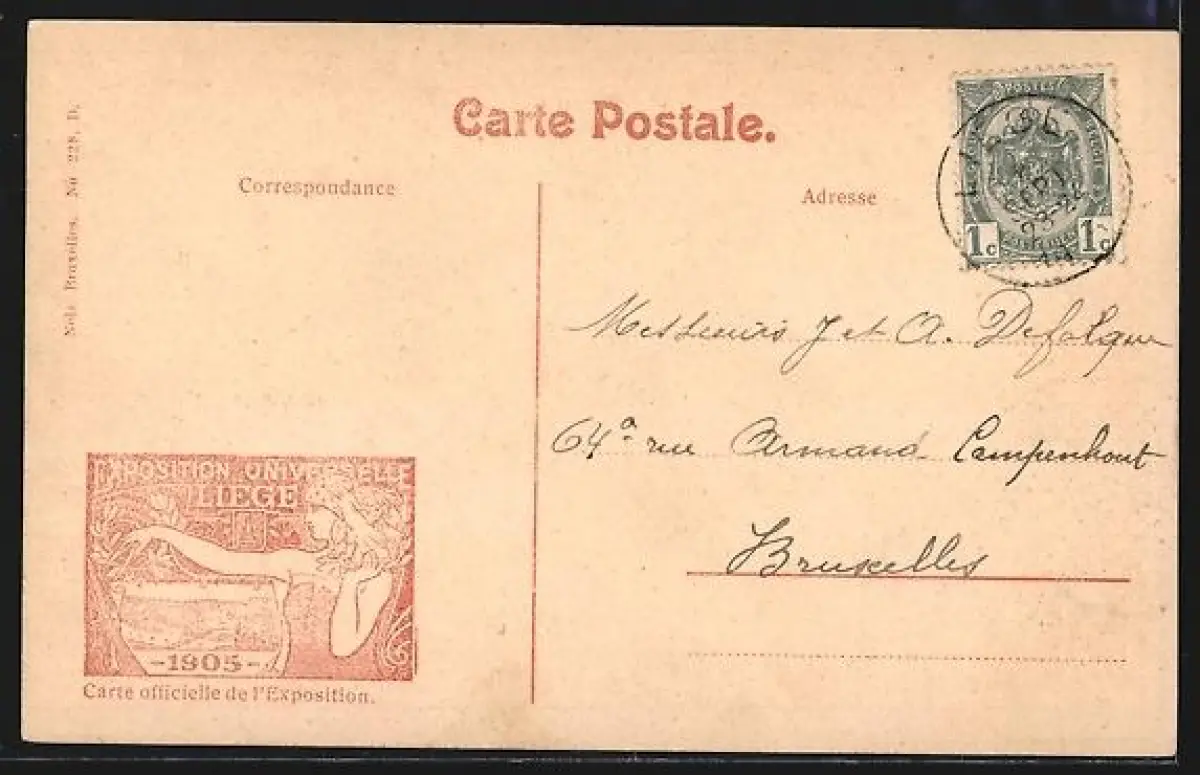 Carte Postale.
Correspondance
Adresse
Nels, Bruxelles. No 228, D.
POSTES
1c 1c
SEPT
Messieurs J et A. Defalque
64a rue Armand Campenhout
Bruxelles
EXPOSITION UNIVERSELLE
LIEGE
-1905-
Carte officielle de l'Exposition.